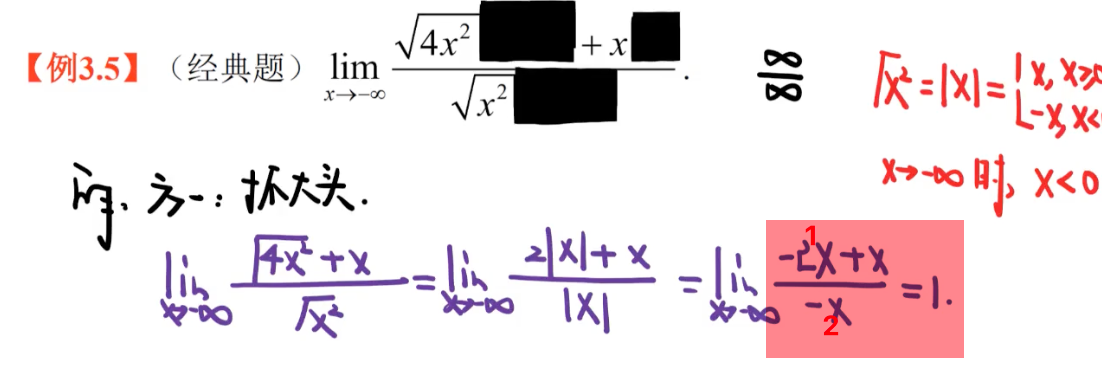 【例3.5】（经典题） lim x→-∞ (√4x² + x) / √x² .
∞/∞
√x² = |x| = { x, x≥0
-x, x<0
x→-∞时, x<0
解. 方一: 抓大头.
lim x→-∞ (√4x² + x) / √x² = lim x→-∞ (2|x| + x) / |x| = lim x→-∞ (-2x + x) / -x = 1.
1
2